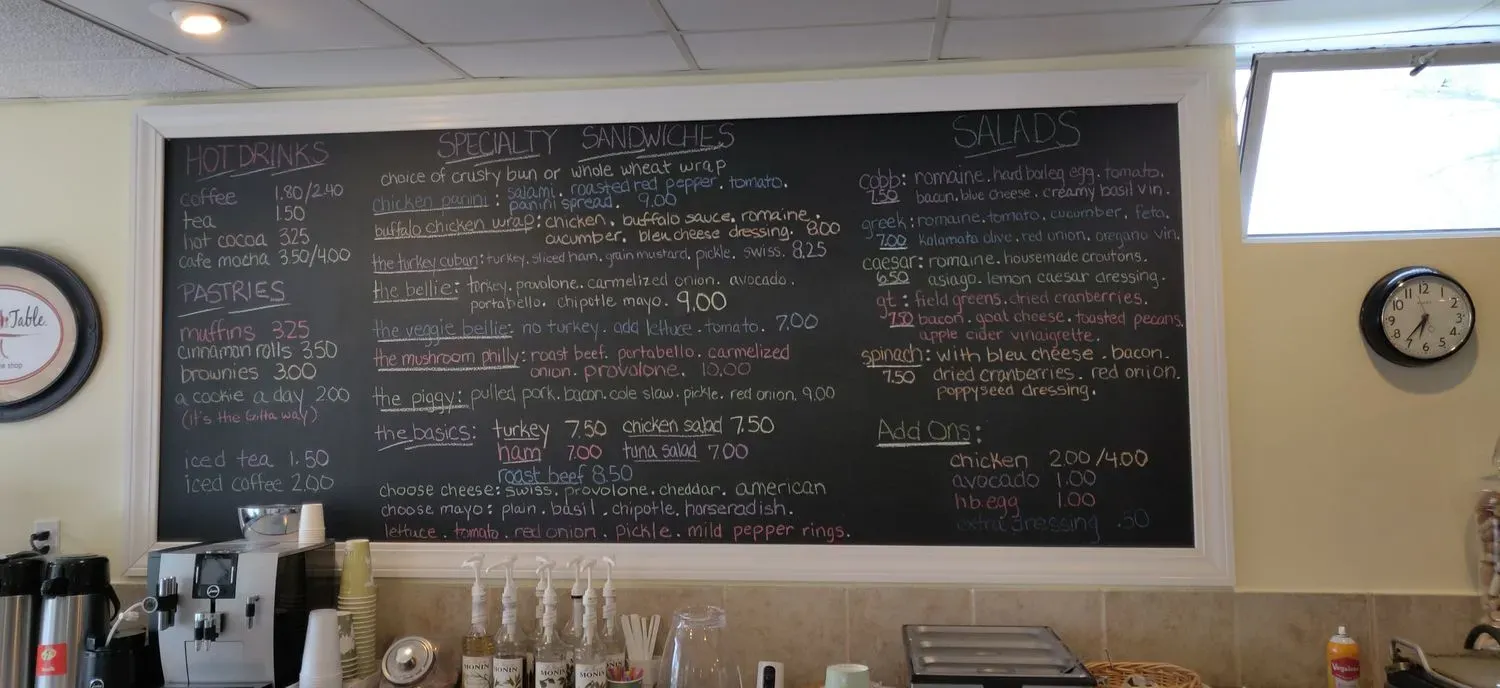 HOT DRINKS
coffee 1.80/2.40
tea 1.50
hot cocoa 3.25
cafe mocha 3.50/4.00
PASTRIES
muffins 3.25
cinnamon rolls 3.50
brownies 3.00
a cookie a day 2.00
(it's the Gitta way)
iced tea 1.50
iced coffee 2.00
SPECIALTY SANDWICHES
choice of crusty bun or whole wheat wrap
chicken panini: salami. roasted red pepper. tomato.
panini spread. 9.00
buffalo chicken wrap: chicken. buffalo sauce. romaine.
cucumber. bleu cheese dressing. 8.00
the turkey cuban: turkey. sliced ham. grain mustard. pickle. swiss. 8.25
the bellie: turkey. provolone. carmelized onion. avocado.
portabello. chipotle mayo. 9.00
the veggie bellie: no turkey. add lettuce. tomato. 7.00
the mushroom philly: roast beef. portabello. carmelized
onion. provalone. 10.00
the piggy: pulled pork. bacon. cole slaw. pickle. red onion. 9.00
the basics: turkey 7.50 chicken salad 7.50
ham 7.00 tuna salad 7.00
roast beef 8.50
choose cheese: swiss. provolone. cheddar. american
choose mayo: plain. basil. chipotle. horseradish.
lettuce. tomato. red onion. pickle. mild pepper rings.
SALADS
cobb: romaine. hard boiled egg. tomato.
7.50 bacon. blue cheese. creamy basil vin.
greek: romaine. tomato. cucumber. feta.
7.00 kalamata olive. red onion. oregano vin.
caesar: romaine. housemade croutons.
6.50 asiago. lemon caesar dressing.
gt: field greens. dried cranberries.
7.50 bacon. goat cheese. toasted pecans.
apple cider vinaigrette.
spinach: with bleu cheese. bacon.
7.50 dried cranberries. red onion.
poppyseed dressing.
Add Ons:
chicken 2.00/4.00
avocado 1.00
h.b. egg 1.00
extra dressing .50
Table.
shop
12
1
2
3
4
5
6
7
8
9
10
11
MONIN
MONIN
MONIN
MONIN